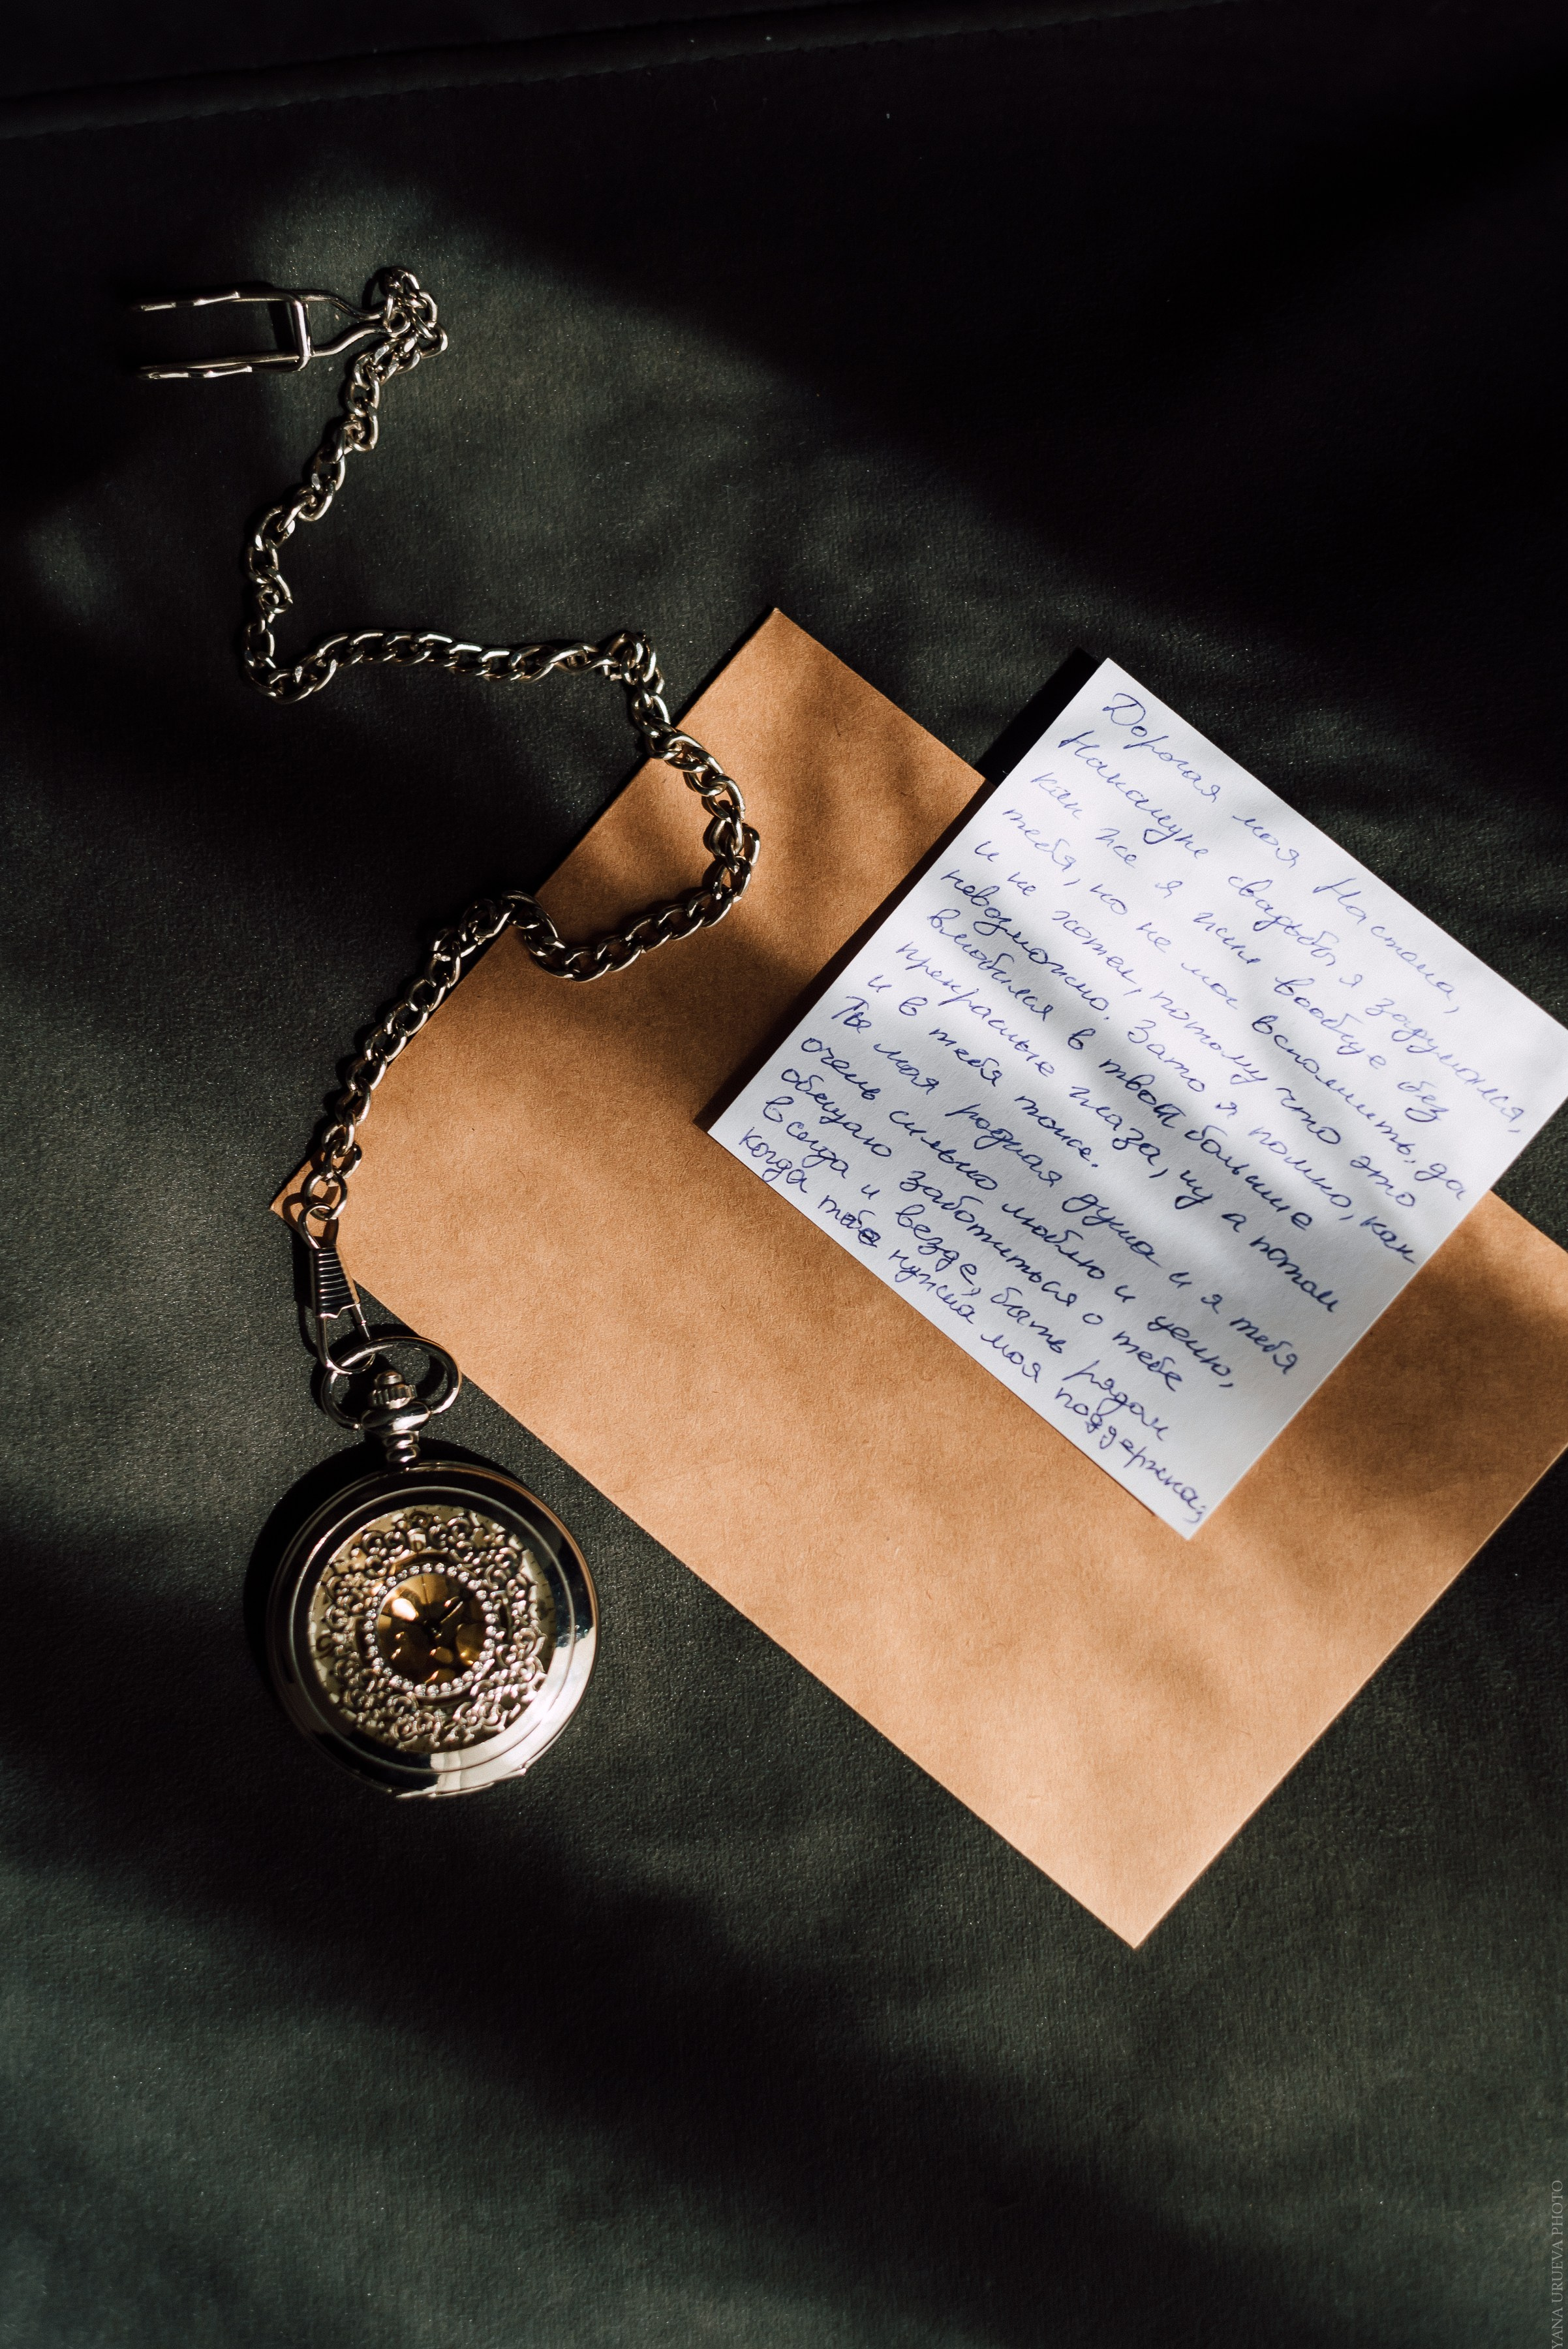 Дорогая моя Настана,
Накануне свадьбы я задумался,
как же я жил вообще без
тебя, но не мог вспомнить, да
и не хотел, потому что это
невозможно. Зато я помню, как
влюбился в твои большие
прекрасные глаза, ну а потом
и в тебя тоже.
Ты моя родная душа и я тебя
очень сильно люблю и ценю,
обещаю заботиться о тебе
всегда и везде, быть рядом
когда тебе нужна моя поддержка,
YANA URUEVA PHOTO